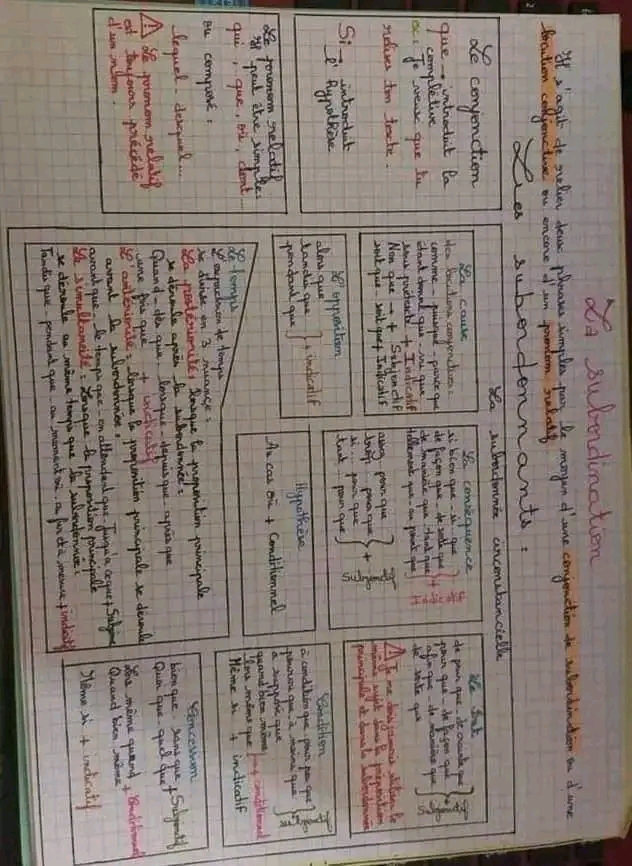 La subordination
Il s'agit de relier deux phrases simples par le moyen d'une conjonction de subordination ou d'une
locution conjonctive ou encore d'un pronom relatif
Les subordonnants :
Le conjonction
que → introduit la
complétive
ex: Je veux que tu
relises ton texte.
Si → introduit
l'hypothèse
Le pronom relatif
Il peut être simple:
qui, que, où, dont
ou composé:
lequel - duquel...
⚠ Le pronom relatif
est toujours précédé
d'un nom.
La subordonnée circonstancielle
La cause
les locutions conjonctives:
comme - puisque - parce que
étant donné que - vu que
sous prétexte + Indicatif
Non que + Subjonctif
soit que - soit que + Indicatif
La conséquence
si bien que - si que
de façon que - de sorte que
de manière que - tant que
tellement que - au point que
assez pour que
trop - pour que
si ... pour que
tant pour que
} + Subjonctif
Le but
de peur que - de crainte que
pour que - de façon que
afin que - de manière que
de sorte que
⚠ Je ne dois jamais utiliser le
même sujet dans la proposition
principale et dans la subordonnée
L'opposition
alors que
tandis que
pendant que
} + indicatif
Hypothèse
Au cas où + Conditionnel
Condition
à condition que - pour peu que
pourvu que - à moins que
à supposer que
quand bien même
lors même que } + conditionnel
Même si + indicatif
Le temps
L'expression de temps
se divise en 3 nuances:
La postériorité: lorsque la proposition principale
se déroule après la subordonnée:
Quand - dès que - lorsque - depuis que - après que
une fois que + indicatif
L'antériorité: lorsque la proposition principale se déroule
avant la subordonnée:
avant que - le temps que - en attendant que - Jusqu'à ce que + Subjonctif
La simultanéité: Lorsque la proposition principale
se déroule au même temps que la subordonnée:
Tandis que - pendant que - au moment où - au fur et à mesure + indicatif
Concession
bien que - sans que
Quoi que - quel que + Subjonctif
Lors même quand
Quand bien même + Conditionnel
Même si + indicatif